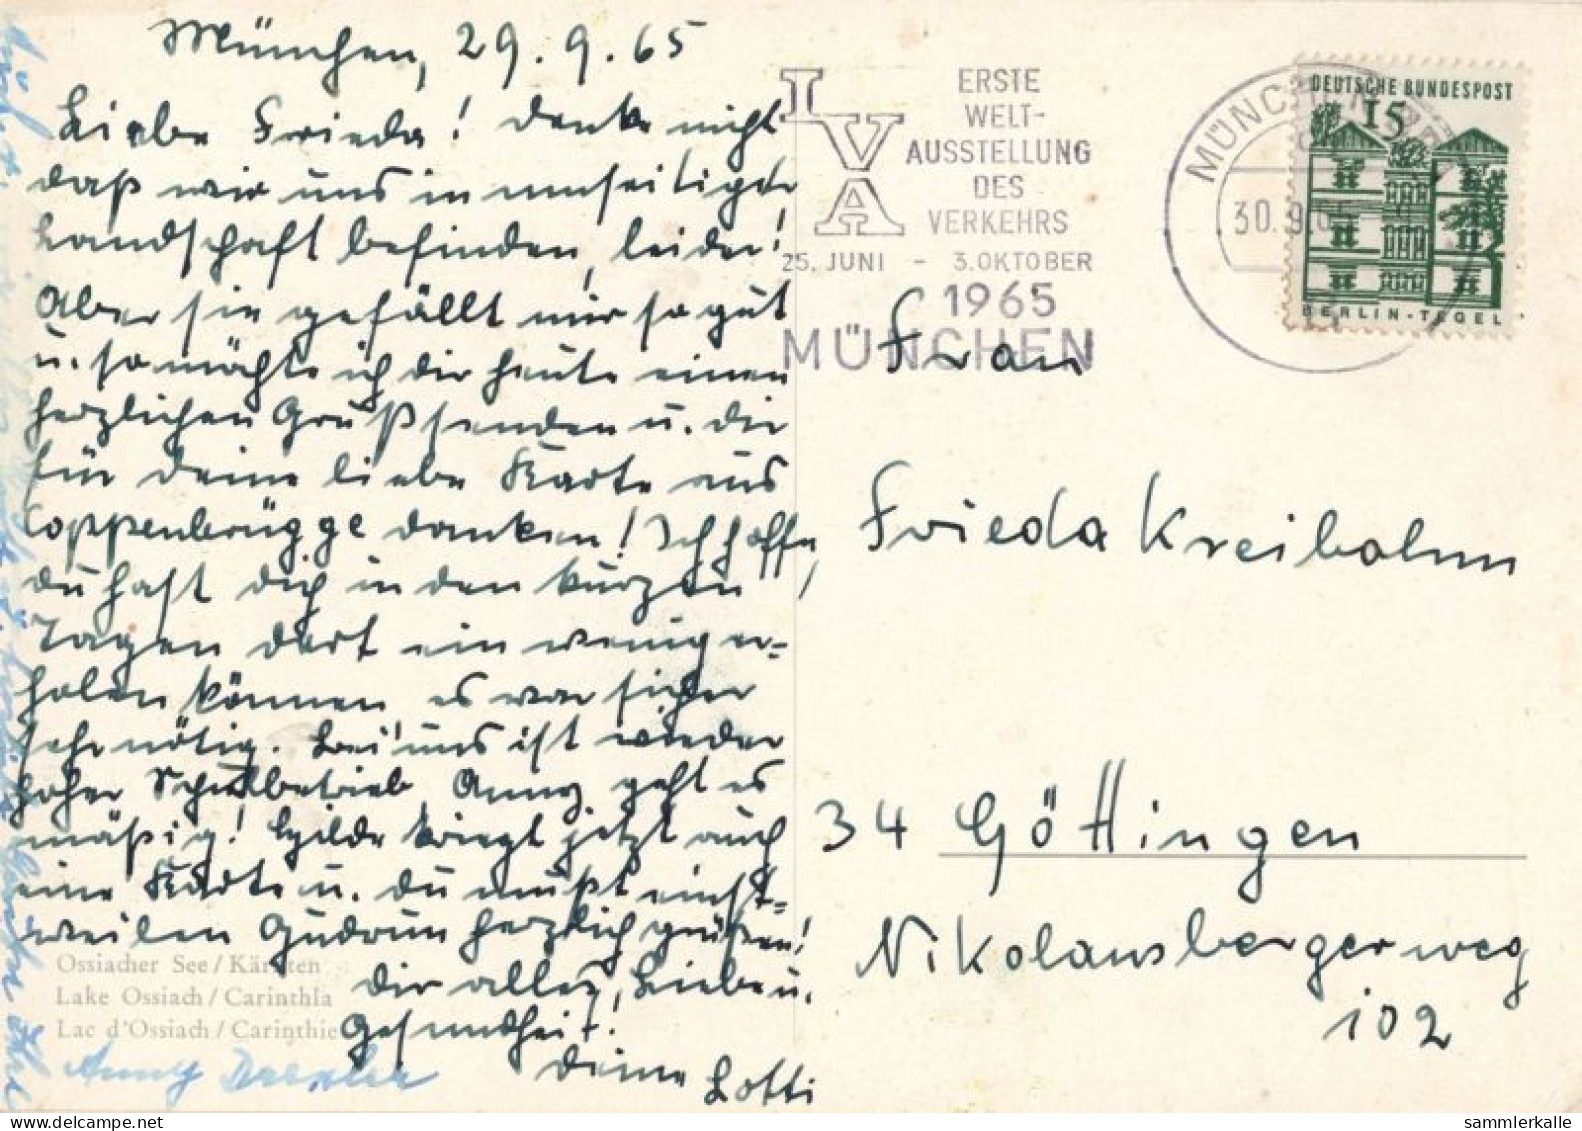 München, 29. 9. 65
Liebe Frieda! Denke nicht
daß wir uns in umseitiger
Landschaft befinden, leider!
Aber sie gefällt mir so gut
u. so möchte ich dir heute einen
herzlichen Gruß senden u. dir
für deine liebe Karte aus
Coppenbrügge danken! Ich hoffe,
du hast dich in den kurzen
Tagen dort ein wenig er=
holen können es war sicher
sehr nötig. Bei uns ist wieder
hoher Schulbetrieb, Anny geht es
mäßig! Hilde kriegt jetzt auch
eine Karte u. du mußt einst=
weilen Gudrun herzlich grüßen!
dir alles Liebe u.
Gesundheit!
deine Lotti
Anny Drexler
Ossiacher See / Kärnten
Lake Ossiach / Carinthia
Lac d'Ossiach / Carinthie
IVA
ERSTE
WELT-
AUSSTELLUNG
DES
VERKEHRS
25. JUNI - 3. OKTOBER
1965
MÜNCHEN
MÜNCHEN
30.9.65
DEUTSCHE BUNDESPOST
15
BERLIN-TEGEL
Frau
Frieda Kreibohm
34 Göttingen
Nikolausbergerweg
102
sammlerkalle